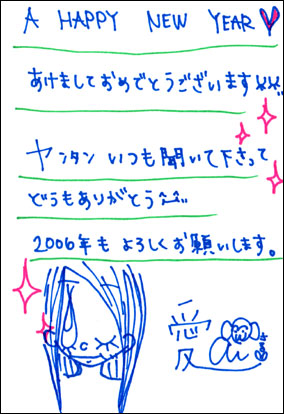 A HAPPY NEW YEAR
あけましておめでとうございます
ヤンタン いつも聞いて下さって
どうもありがとう
2006年も よろしくお願いします。
愛